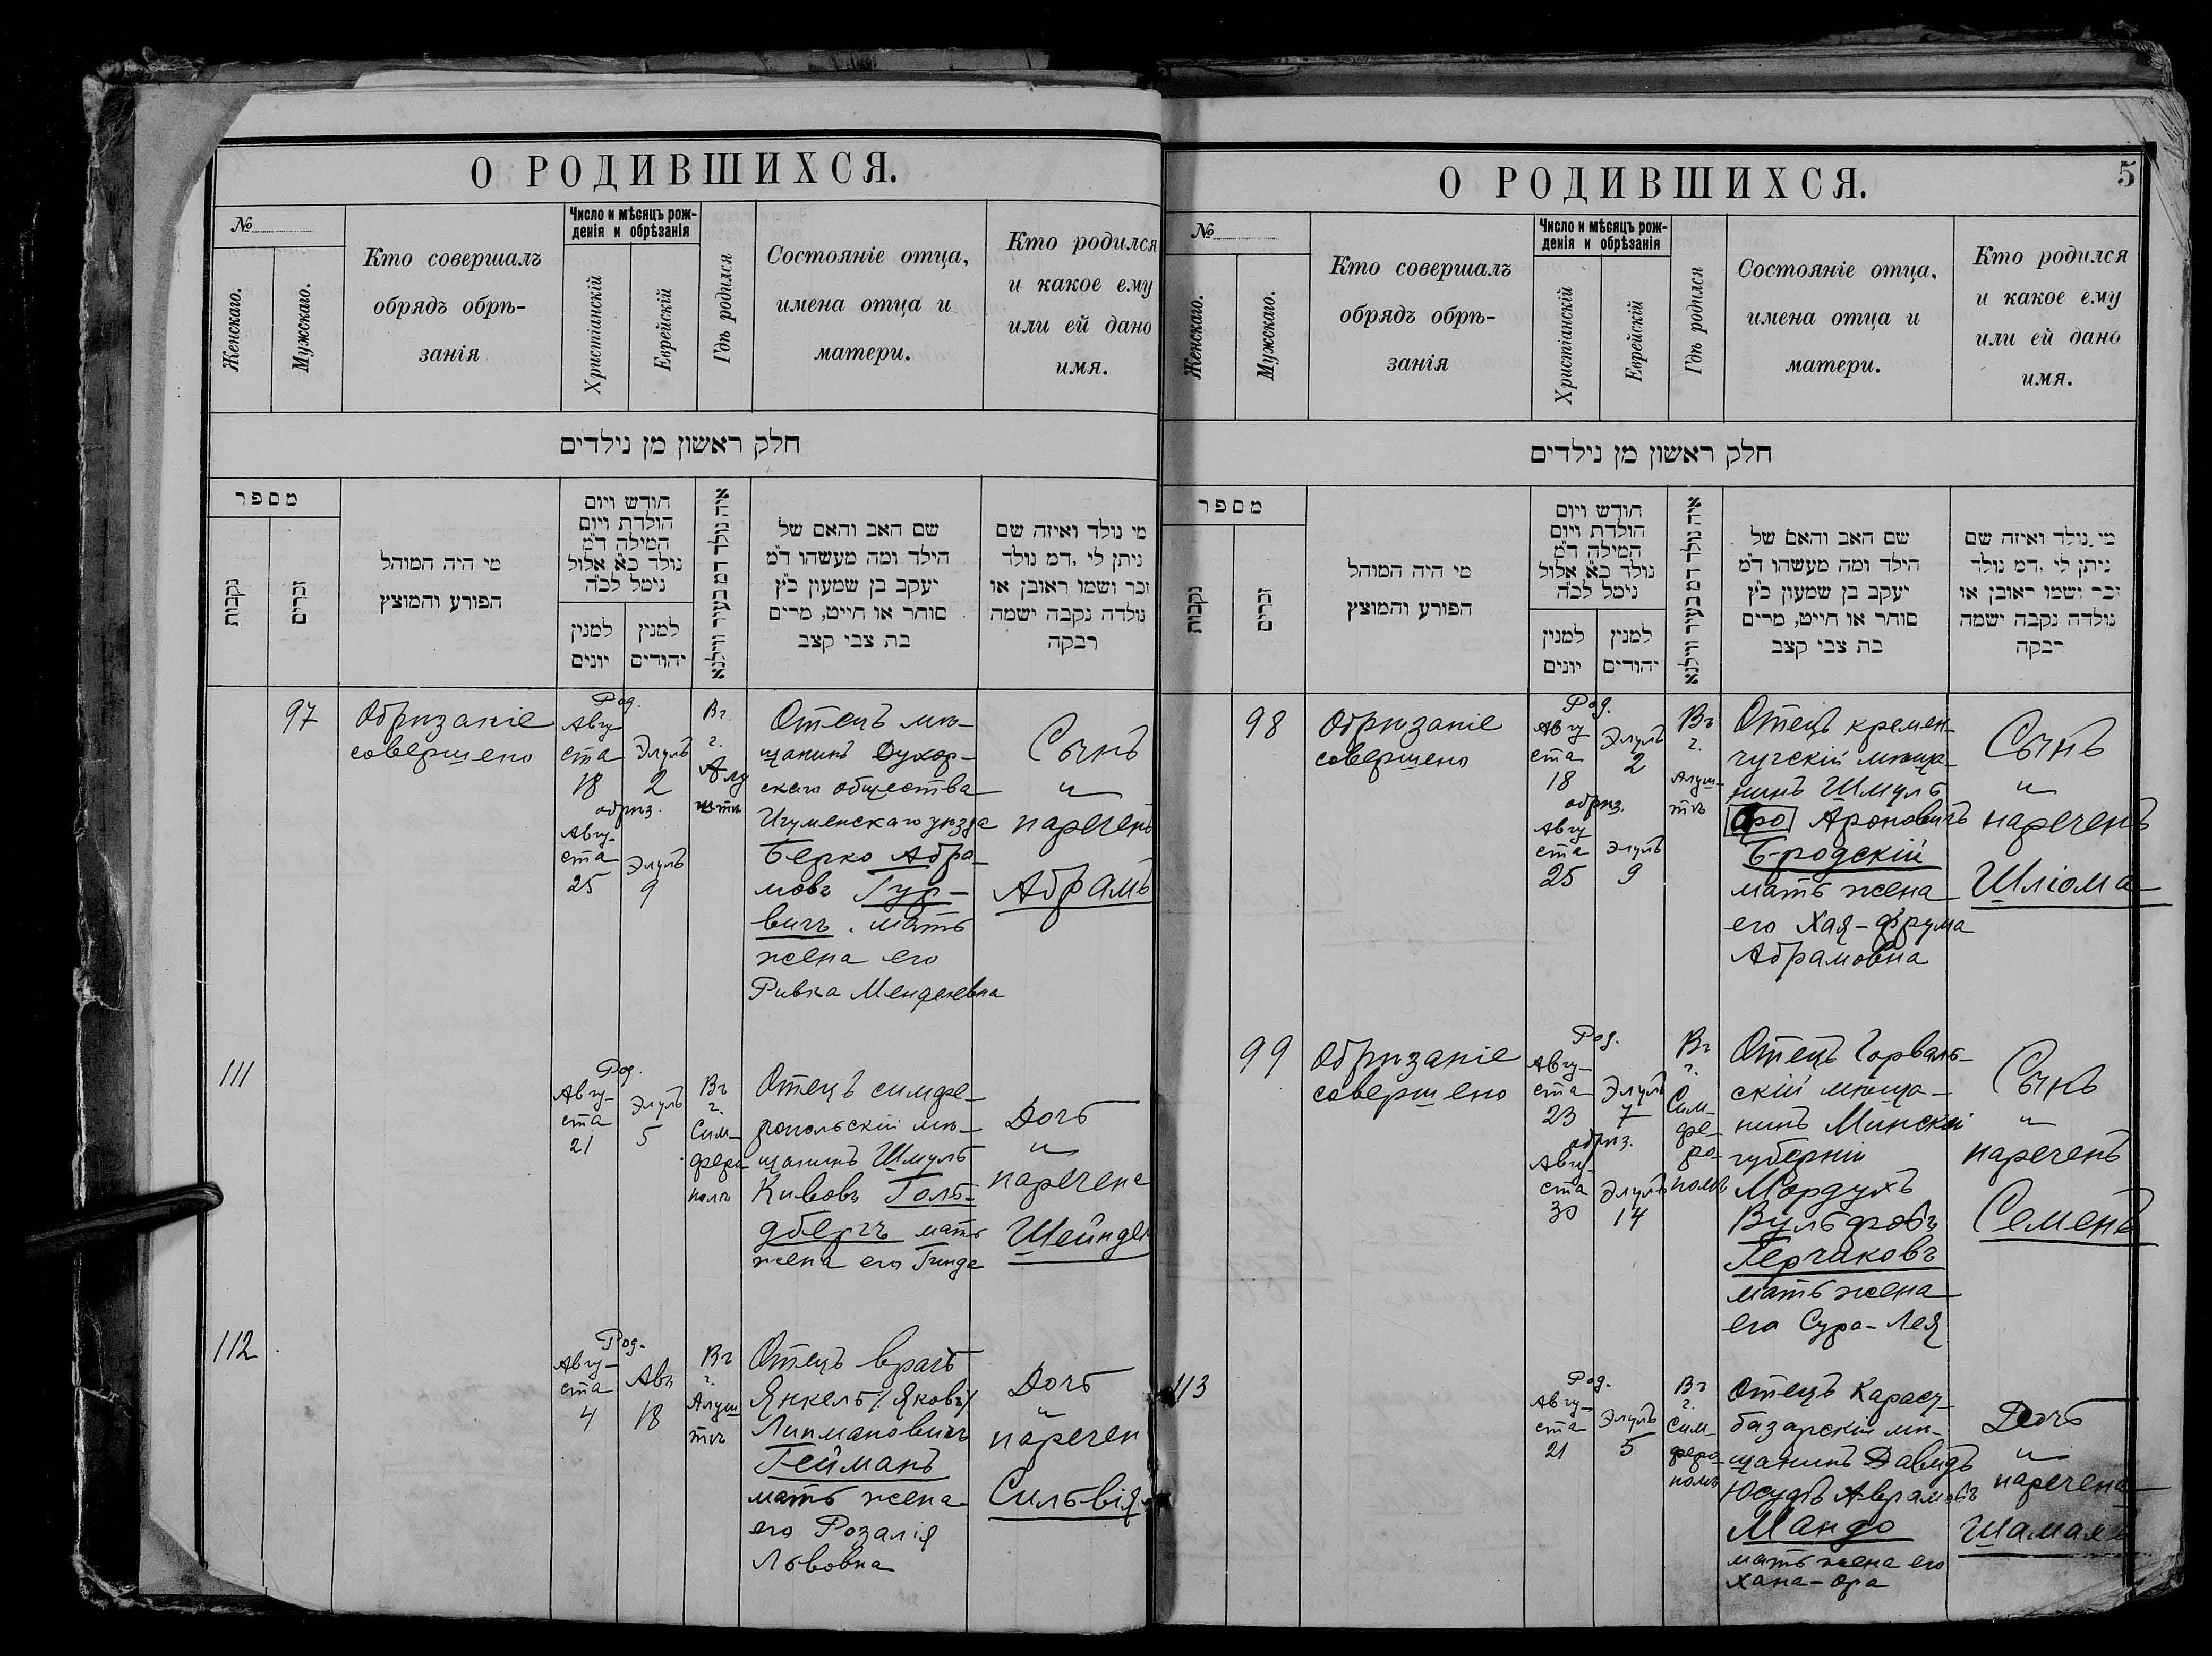 О РОДИВШИХСЯ.
№
Женскаго.
Мужскаго.
Кто совершалъ
обрядъ обрѣ-
занія
Число и мѣсяцъ рож-
денія и обрѣзанія
Христіанскій
Еврейскій
Гдѣ родился
Состояніе отца,
имена отца и
матери.
Кто родился
и какое ему
или ей дано
имя.
חלק ראשון מן נילדים
מספר
נקבות
זכרים
מי היה המוהל
הפורע והמוצץ
חודש ויום
הולדת ויום
המילה ד״מ
נולד כ״א אלול
נימל לכ״ה
למנין
יונים
למנין
יהודים
איה נולד דמ בעיר ווילנא
שם האב והאם של
הילד ומה מעשהו ד״מ
יעקב בן שמעון כ״ץ
סוחר או חייט, מרים
בת צבי קצב
מי נולד ואיזה שם
ניתן לי ,דמ נולד
זכר ושמו ראובן או
נולדה נקבה ישמה
רבקה
97
Обрѣзаніе
совершено
Род.
Авгу-
ста
18
Элулъ
2
обрѣз.
Авгу-
ста
25
Элулъ
9
Въ
г.
Алу
штѣ
Отецъ мѣ-
щанинъ
скаго общества
Игуменскаго уѣзда
Берко Абра-
мовъ Гур-
вичъ. мать
жена его
Ривка Менделевна
Сынъ
и
нареченъ
Абрамъ
111
Род.
Авгу-
ста
21
Элулъ
5
Въ
г.
Сим-
феро
полѣ
Отецъ симфе-
ропольскій мѣ-
щанинъ Шмуль
Кивовъ Голь-
дбергъ мать
жена его Гинда
Дочь
и
наречена
Шейндел
112
Род.
Авгу-
ста
4
Авъ
18
Въ
г.
Алуш
тѣ
Отецъ врачъ
Янкель /Яковъ/
Липмановичъ
Гейманъ
мать жена
его Розалія
Львовна
Дочь
и
наречен
Сильвія
О РОДИВШИХСЯ.
5
№
Женскаго.
Мужскаго.
Кто совершалъ
обрядъ обрѣ-
занія
Число и мѣсяцъ рож-
денія и обрѣзанія
Христіанскій
Еврейскій
Гдѣ родился
Состояніе отца,
имена отца и
матери.
Кто родился
и какое ему
или ей дано
имя.
חלק ראשון מן נילדים
מספר
נקבות
זכרים
מי היה המוהל
הפורע והמוצץ
חודש ויום
הולדת ויום
המילה ד״מ
נולד כ״א אלול
נימל לכ״ה
למנין
יונים
למנין
יהודים
איה נולד דמ בעיר ווילנא
שם האב והאם של
הילד ומה מעשהו ד״מ
יעקב בן שמעון כ״ץ
סוחר או חייט, מרים
בת צבי קצב
מי נולד ואיזה שם
ניתן לי ,דמ נולד
זכר ושמו ראובן או
נולדה נקבה ישמה
רבקה
98
Обрѣзаніе
совершено
Род.
Авгу
ста
18
Элулъ
2
обрѣз.
Авгу
ста
25
Элулъ
9
Въ
г.
Алуш-
тѣ
Отецъ кремен-
чугскій мѣща-
нинъ Шмуль
Ароновичъ
Бродскій
мать жена
его Хая-Фрума
Абрамовна
Сынъ
и
нареченъ
Шліома
99
Обрѣзаніе
совершено
Род.
Авгу-
ста
23
Элулъ
7
обрѣз.
Авгу-
ста
30
Элулъ
14
Въ
г.
Сим-
фе-
ро-
полѣ
Отецъ Горваль-
скій мѣща-
нинъ Минской
губерніи
Мордухъ
Вульфовъ
Герчиковъ
мать жена
его Сура-Лея
Сынъ
и
нареченъ
Семенъ
113
Род.
Авгу-
ста
21
Элулъ
5
Въ
г.
Сим-
феро-
полѣ
Отецъ Карасу-
базарскій мѣ-
щанинъ Давидъ
Юсуфъ Аврамовъ
Мандо
мать жена его
Хана-Ора
Дочь
и
наречена